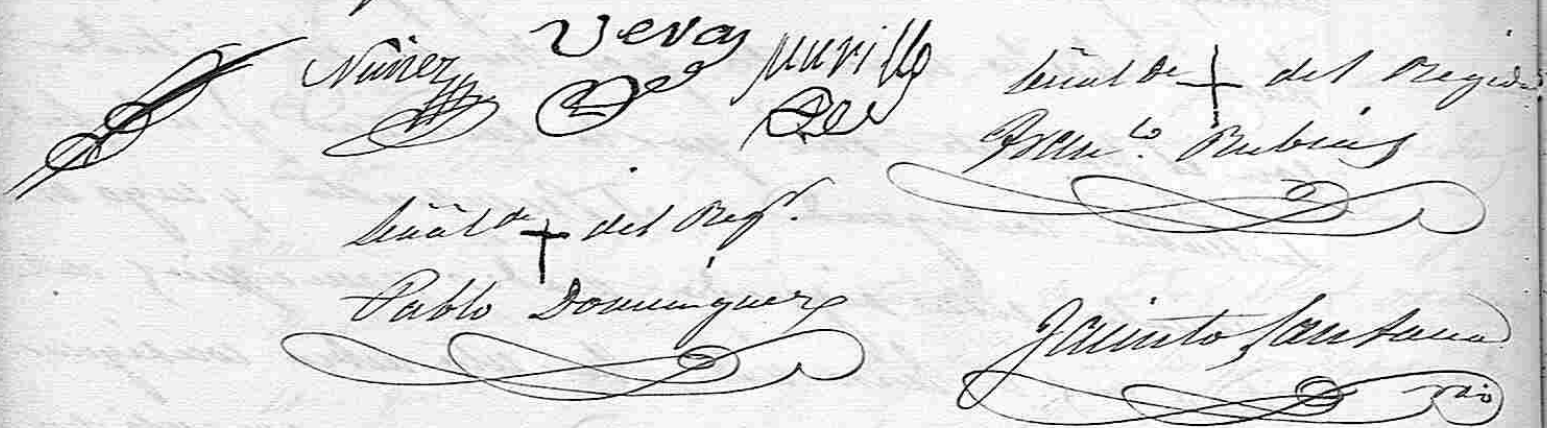 Nuñez Veras Murillo
Señal de + del Regidor
Franco. Rubias
Señal de + del Regr.
Pablo Dominguez
Jacinto Santana